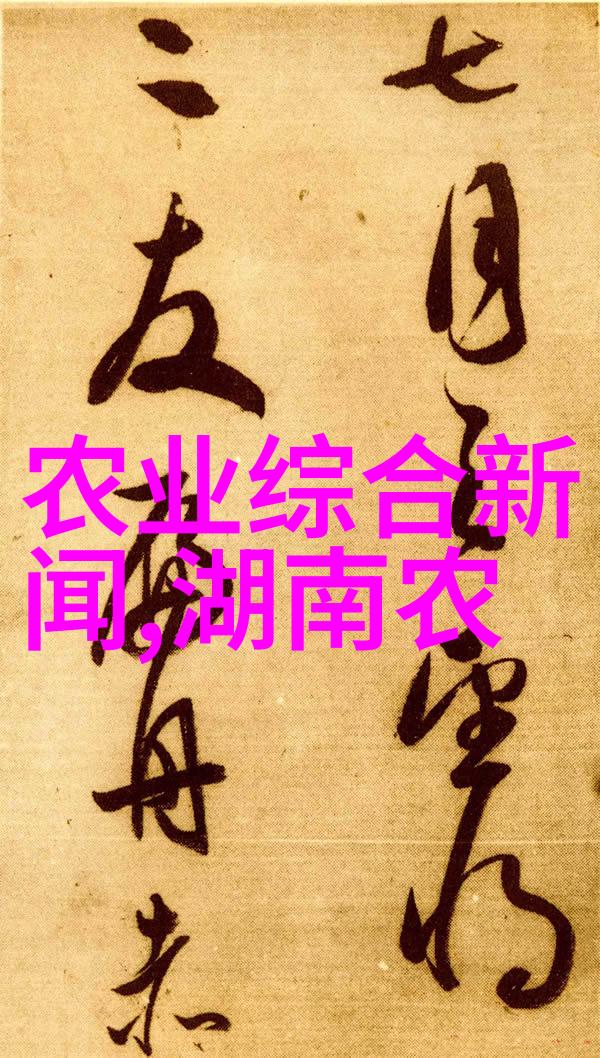 七月望将
二友舟赤
农业综合新
闻,湖南农